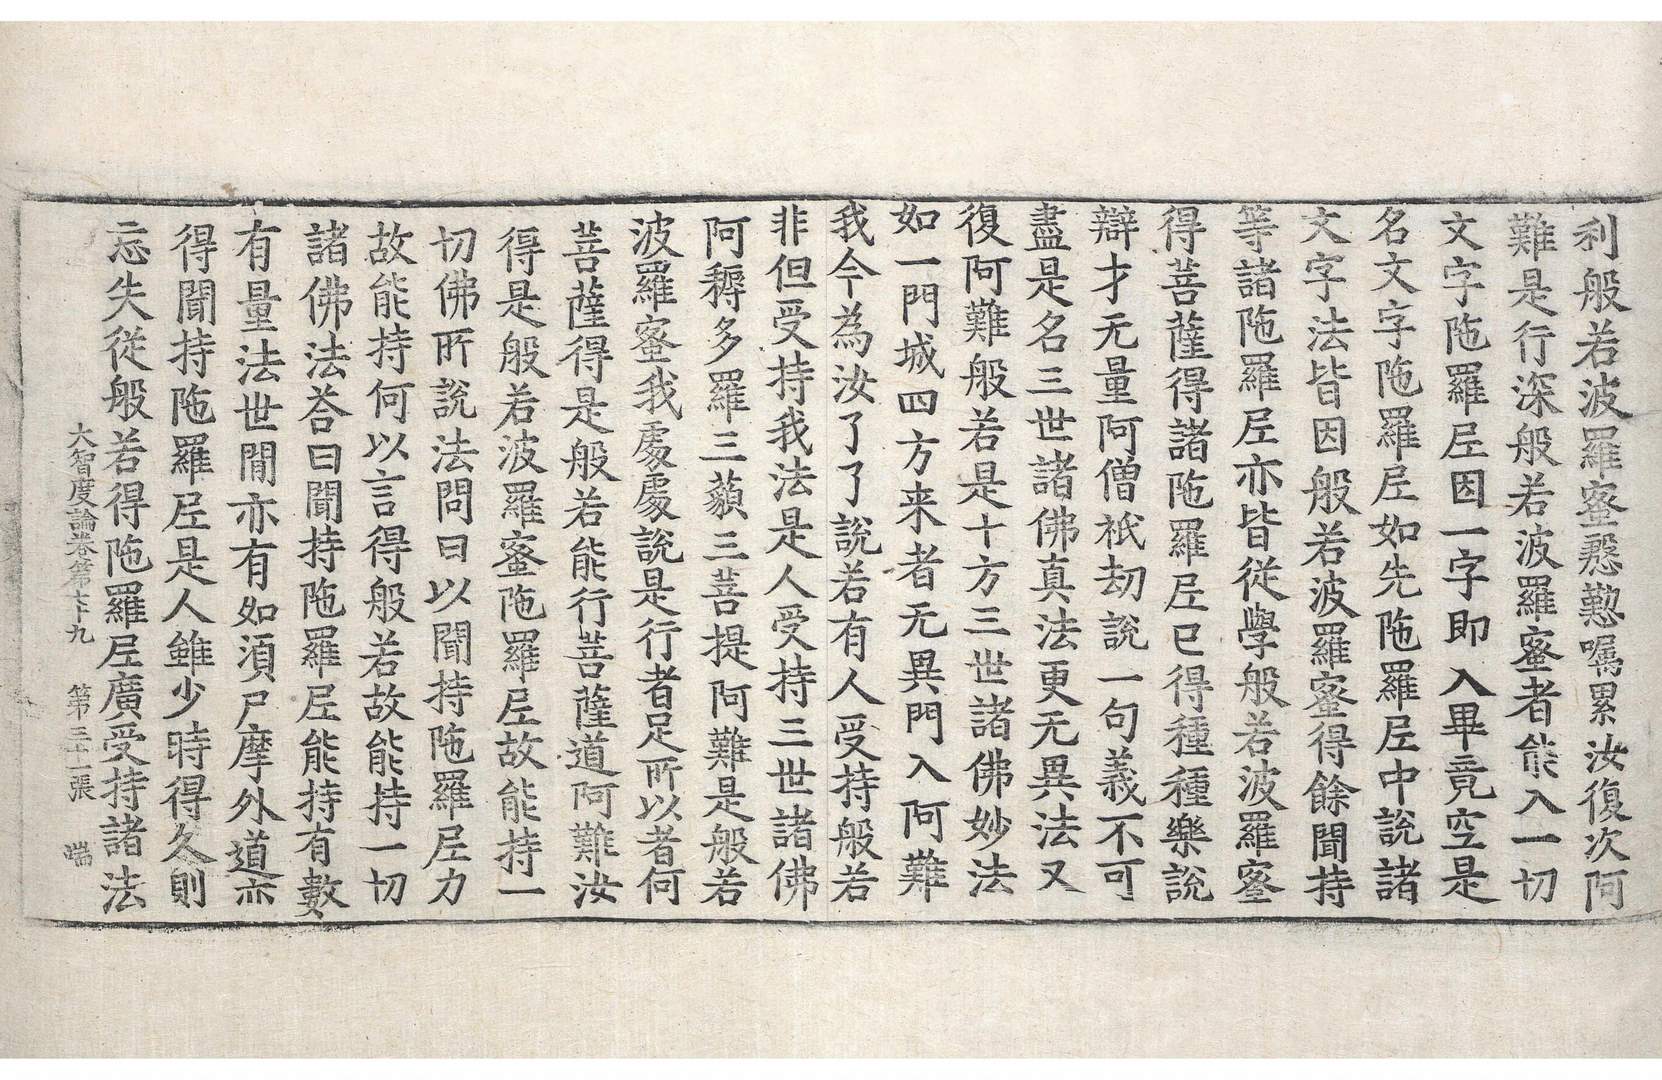 利般若波羅蜜慇懃囑累汝復次阿
難是行深般若波羅蜜者能入一切
文字陁羅尼因一字即入畢竟空是
名文字陁羅尼如先陁羅尼中說諸
文字法皆因般若波羅蜜得餘聞持
等諸陁羅尼亦皆從學般若波羅蜜
得菩薩得諸陁羅尼已得種種樂說
辯才无量阿僧祇劫說一句義不可
盡是名三世諸佛真法更无異法又
復阿難般若是十方三世諸佛妙法
如一門城四方来者无異門入阿難
我今為汝了了說若有人受持般若
非但受持我法是人受持三世諸佛
阿耨多羅三藐三菩提阿難是般若
波羅蜜我處處說是行者足所以者何
菩薩得是般若能行菩薩道阿難汝
得是般若波羅蜜陁羅尼故能持一
切佛所說法問曰以聞持陁羅尼力
故能持何以言得般若故能持一切
諸佛法荅曰聞持陁羅尼能持有數
有量法世閒亦有如湏尸摩外道亦
得聞持陁羅尼是人雖少時得久則
忘失從般若得陁羅尼廣受持諸法
大智度論卷第七十九 第三十二張 喘